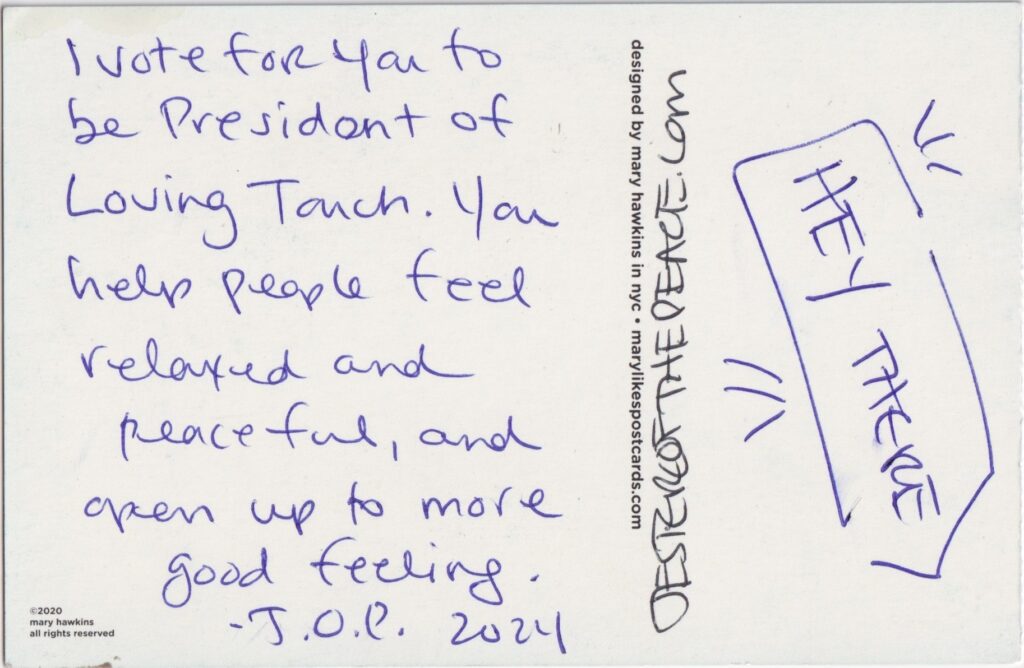 I vote for you to
be President of
Loving Touch. You
help people feel
relaxed and
peaceful, and
open up to more
good feeling.
-J.O.P. 2024
©2020
mary hawkins
all rights reserved
designed by mary hawkins in nyc • marylikespostcards.com
JESTEROFTHEPEACE.COM
HEY THERE